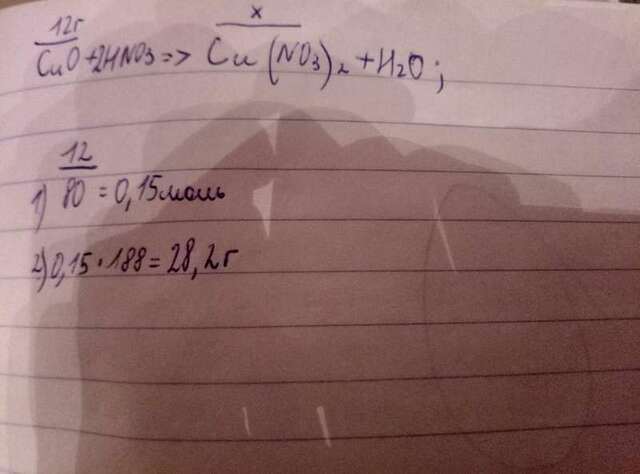 12г x
CuO+2HNO3=>Cu(NO3)2+H2O;
12
1) 80 = 0,15моль
2) 0,15·188=28,2г